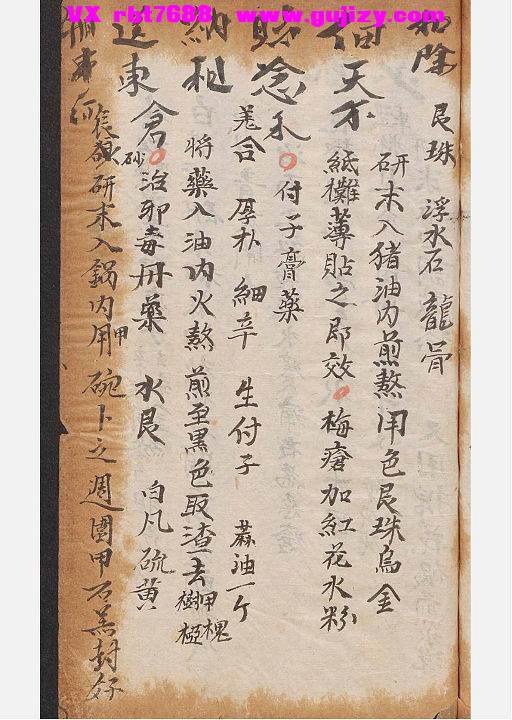 VX rbt7688 www.gujizy.com
和除
艮珠 浮水石 龍骨
研末入猪油内煎熬用色艮珠烏金
福天不
紙攤薄貼之即效 梅瘡加紅花水粉
念禾
付子膏藥
羌合 厚朴 細辛 生付子 蔴油一斤
納租
將藥入油内火熬煎至黑色取渣去用槐樹
東倉
砂 治邪毒丹藥 水艮 白凡 硫黃
研末入鍋内用碗卜之週圍用石羔封好